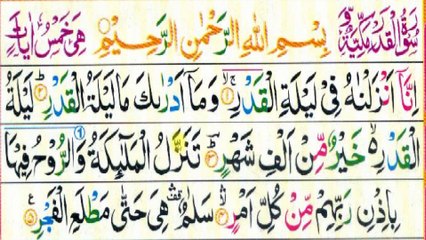 سُوْرَةُ الْقَدْرِ مَكِّيَّةٌ بِسْمِ اللهِ الرَّحْمٰنِ الرَّحِيْمِ هِىَ خَمْسُ اٰيَاتٍ
اِنَّاۤ اَنْزَلْنٰهُ فِىْ لَيْلَةِ الْقَدْرِ ۚۖ ۱ وَمَاۤ اَدْرٰىكَ مَا لَيْلَةُ الْقَدْرِ ؕ ۲ لَيْلَةُ
الْقَدْرِ ۙ خَيْرٌ مِّنْ اَلْفِ شَهْرٍ ؕ ۳ تَنَزَّلُ الْمَلٰٓئِكَةُ وَالرُّوْحُ فِيْهَا
بِاِذْنِ رَبِّهِمْ مِّنْ كُلِّ اَمْرٍ ۙ ۴ سَلٰمٌ ۛ هِىَ حَتّٰى مَطْلَعِ الْفَجْرِ ۵